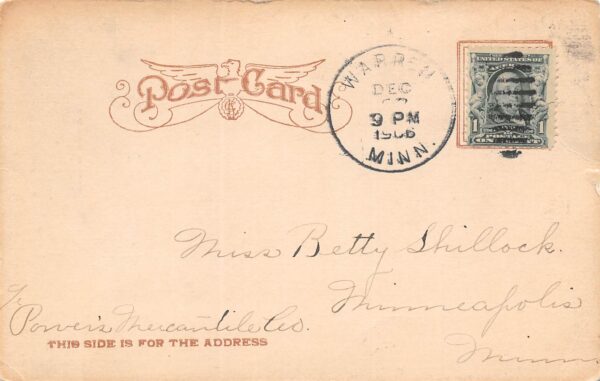 Post Card
WARREN
DEC
9 PM
1906
MINN.
UNITED STATES OF
1 1
Miss Betty Shillock.
Minneapolis
Minn
c/o
Power's Mercantile Co.
THIS SIDE IS FOR THE ADDRESS